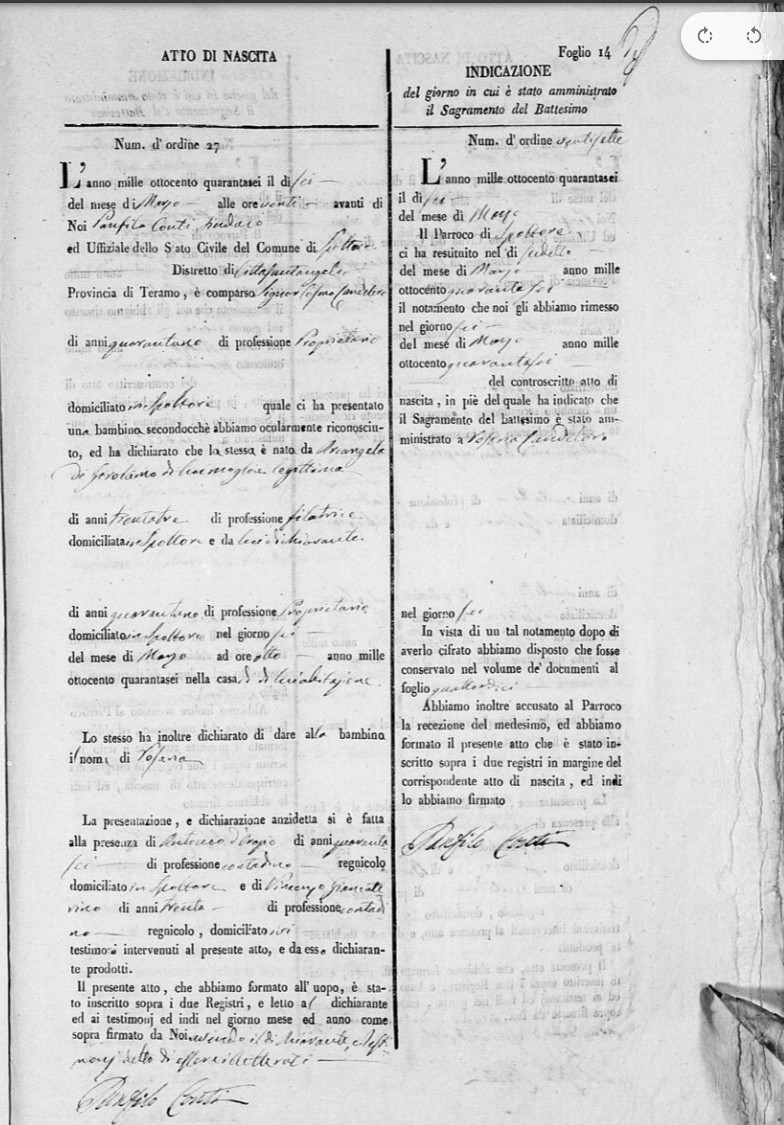 ATTO DI NASCITA
Num. d' ordine 27
L' anno mille ottocento quarantasei il di sei
del mese di Marzo alle ore venti avanti di
Noi Panfilo Conti Sindaco
ed Uffiziale dello Stato Civile del Comune di Spoltore
Distretto di Cittasantangelo
Provincia di Teramo, è comparso Signor Cesare Candeloro
di anni quarantuno di professione Proprietario
domiciliato in Spoltore quale ci ha presentato
una bambina secondocchè abbiamo ocularmente riconosciu-
to, ed ha dichiarato che lo stessa è nata da Arcangela
di Girolamo di lui moglie legittima
di anni trentatre di professione filatrice
domiciliata in Spoltore e da lui dichiarante
di anni quarantuno di professione Proprietario
domiciliato in Spoltore nel giorno sei
del mese di Marzo ad ore otto anno mille
ottocento quarantasei nella casa di di lui abitazione
Lo stesso ha inoltre dichiarato di dare alla bambina
il nome di
La presentazione, e dichiarazione anzidetta si è fatta
alla presenza di Antonio d'Orazio di anni quaranta
sei di professione contadino regnicolo
domiciliato in Spoltore e di Vincenzo Giancate
rino di anni trenta di professione contadi
no regnicolo, domiciliato ivi
testimonj intervenuti al presente atto, e da esso dichiaran-
te prodotti.
Il presente atto, che abbiamo formato all' uopo, è sta-
to inscritto sopra i due Registri, e letto al dichiarante
ed ai testimonj ed indi nel giorno mese ed anno come
sopra firmato da Noi avendo il dichiarante, e testi
monj detto di essere illetterati
Panfilo Conti
Foglio 14
INDICAZIONE
del giorno in cui è stato amministrato
il Sagramento del Battesimo
Num. d' ordine ventisette
L' anno mille ottocento quarantasei
il di sei
del mese di Marzo
Il Parroco di Spoltore
ci ha restituito nel di sudetto
del mese di Marzo anno mille
ottocento quarantasei
il notamento che noi gli abbiamo rimesso
nel giorno sei
del mese di Marzo anno mille
ottocento quarantasei
del controscritto atto di
nascita, in piè del quale ha indicato che
il Sagramento del battesimo è stato am-
ministrato a Candeloro
nel giorno sei
In vista di un tal notamento dopo di
averlo cifrato abbiamo disposto che fosse
conservato nel volume de' documenti al
foglio quattordici
Abbiamo inoltre accusato al Parroco
la recezione del medesimo, ed abbiamo
formato il presente atto che è stato in-
scritto sopra i due registri in margine del
corrispondente atto di nascita, ed indi
lo abbiamo firmato
Panfilo Conti